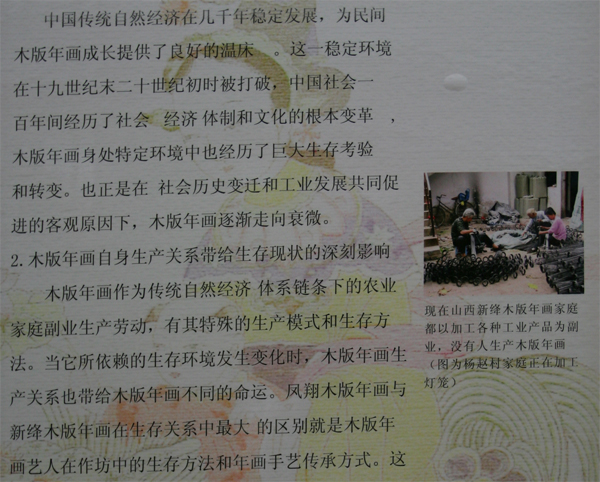 中国传统自然经济在几千年稳定发展，为民间
木版年画成长提供了良好的温床 。这一稳定环境
在十九世纪末二十世纪初时被打破，中国社会一
百年间经历了社会 经济 体制和文化的根本变革 ，
木版年画身处特定环境中也经历了巨大生存考验
和转变。也正是在 社会历史变迁和工业发展共同促
进的客观原因下，木版年画逐渐走向衰微。
2.木版年画自身生产关系带给生存现状的深刻影响
木版年画作为传统自然经济 体系链条下的农业
家庭副业生产劳动，有其特殊的生产模式和生存方
法。当它所依赖的生存环境发生变化时，木版年画生
产关系也带给木版年画不同的命运。凤翔木版年画与
新绛木版年画在生存关系中最大 的区别就是木版年
画艺人在作坊中的生存方法和年画手艺传承方式。这
现在山西新绛木版年画家庭
都以加工各种工业产品为副
业，没有人生产木版年画
（图为杨赵村家庭正在加工
灯笼）